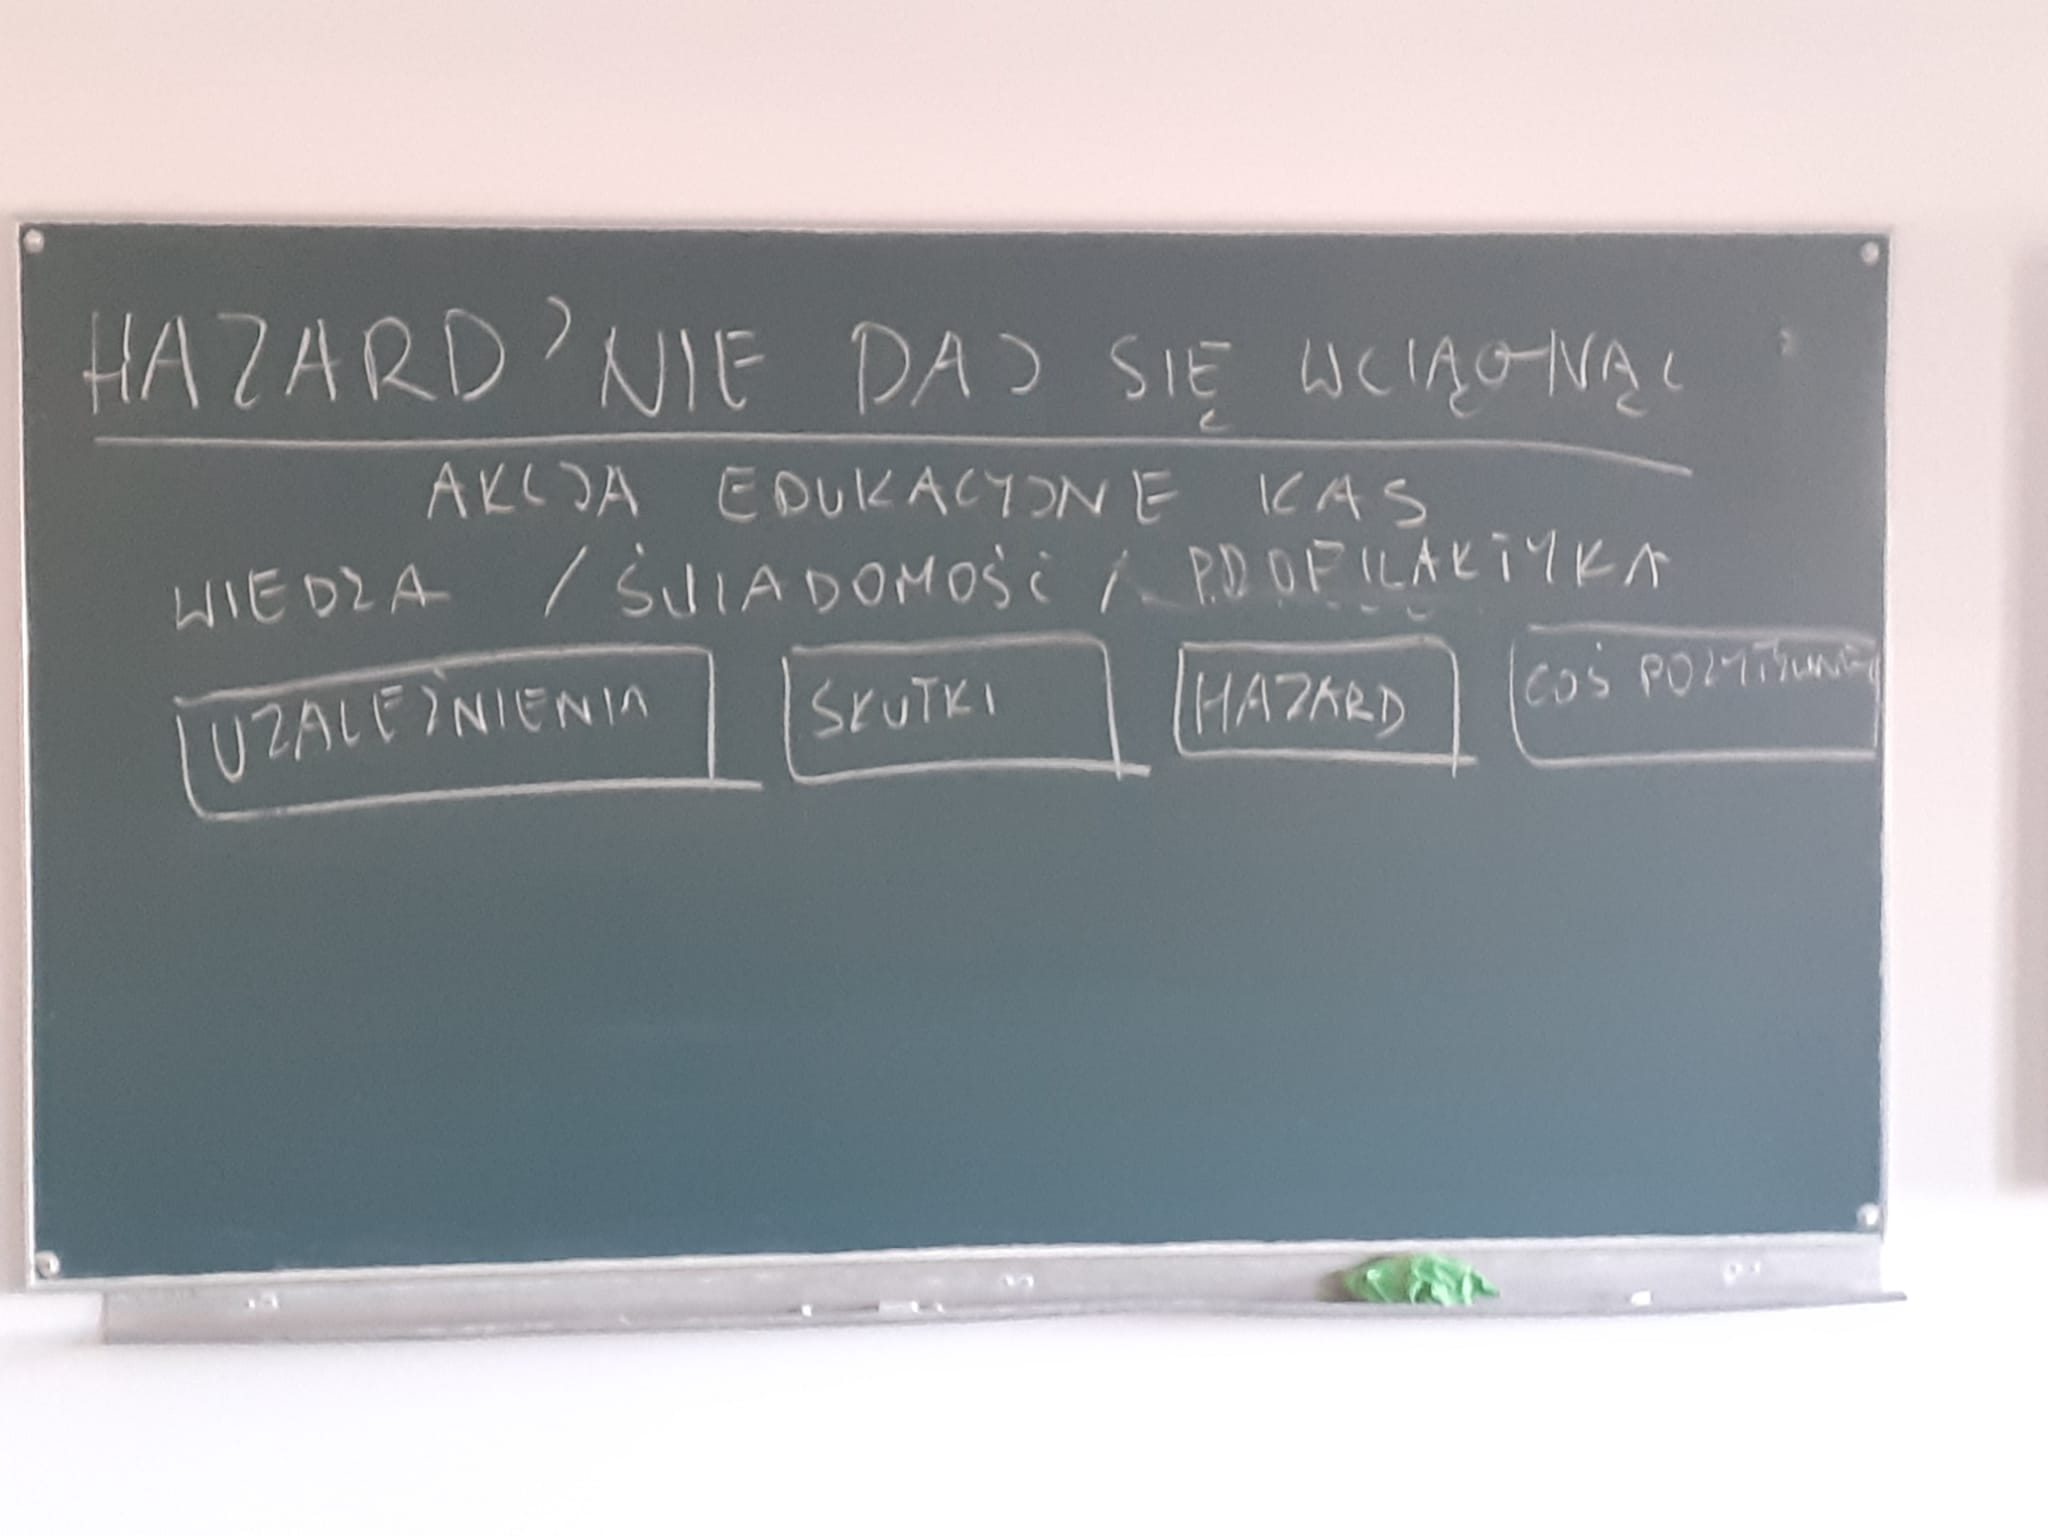 HAZARD' NIE DAJ SIĘ WCIĄGNĄĆ
AKCJA EDUKACYJNE KAS
WIEDZA / ŚWIADOMOŚĆ / PROFILAKTYKA
UZALEŻNIENIA SKUTKI HAZARD COŚ